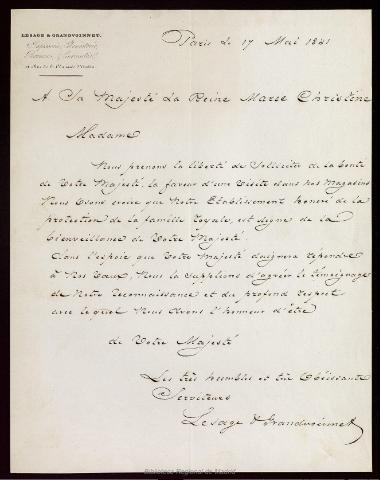 LESAGE & GRANDVOINNET.
Paris le 17 Mai 1841
A Sa Majesté La Reine Marie Christine
Madame
Nous prenons la liberté de Solliciter de la bonté
de Votre Majesté, la faveur d'une Visite dans nos Magasins
Nous Osons croire que Notre Etablissement honoré de la
protection de la famille royale, est digne de la
bienveillance de Votre Majesté.
Dans l'espoir que Votre Majesté daignera répondre
à Nos Vœux, Nous la Supplions d'agréer le témoignage
de Notre reconnaissance et du profond respect
avec lequel Nous Avons l'honneur d'être
de Votre Majesté
Les très humbles et très Obéissants
Serviteurs
Lesage & Grandvoinnet
Biblioteca Regional de Madrid